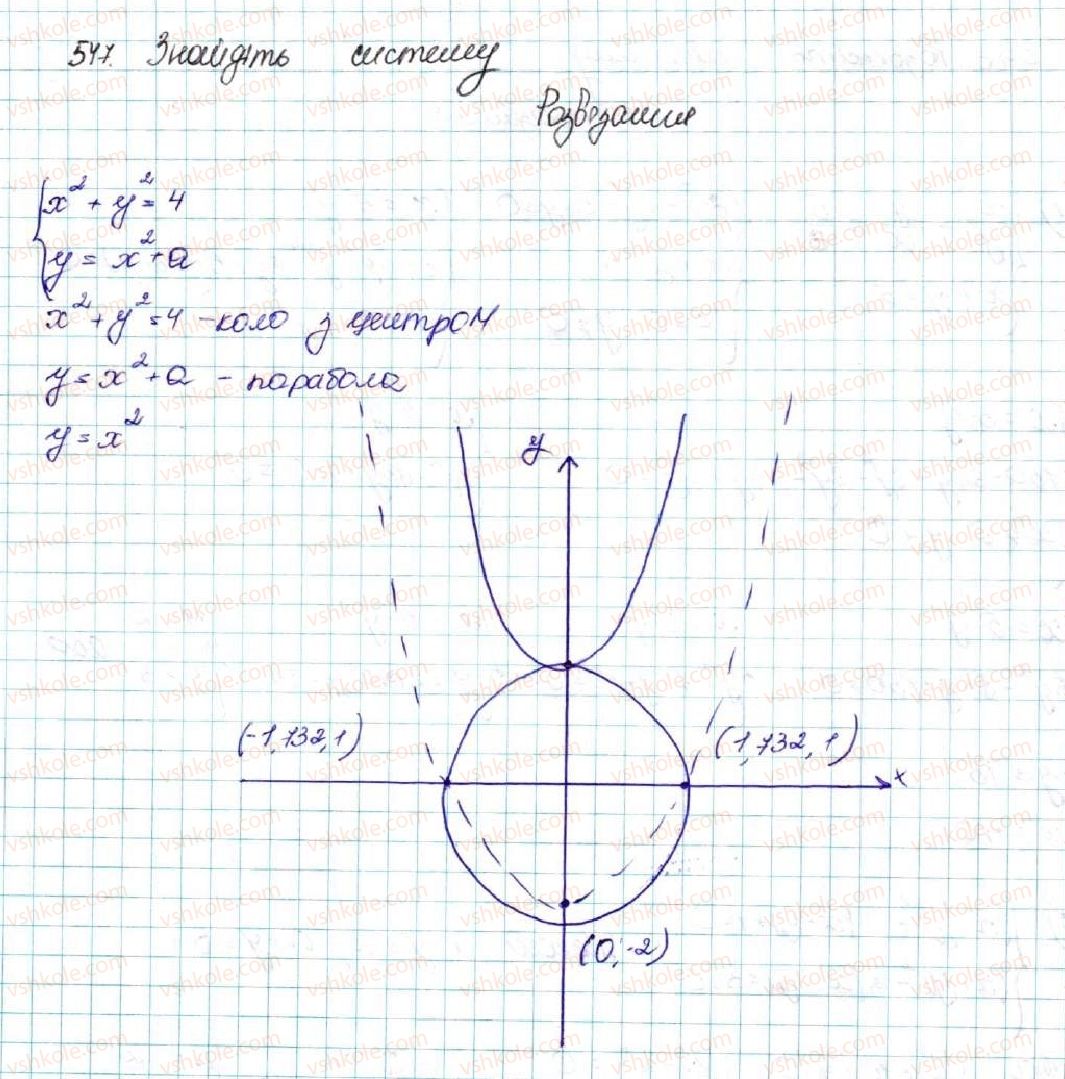 547. Знайдіть систему
Розв'язання
x² + y² = 4
y = x² + a
x² + y² = 4 - коло з центром
y = x² + a - парабола
y = x²
y
(-1,732, 1)
(1,732, 1)
x
(0, -2)
vshkole.com